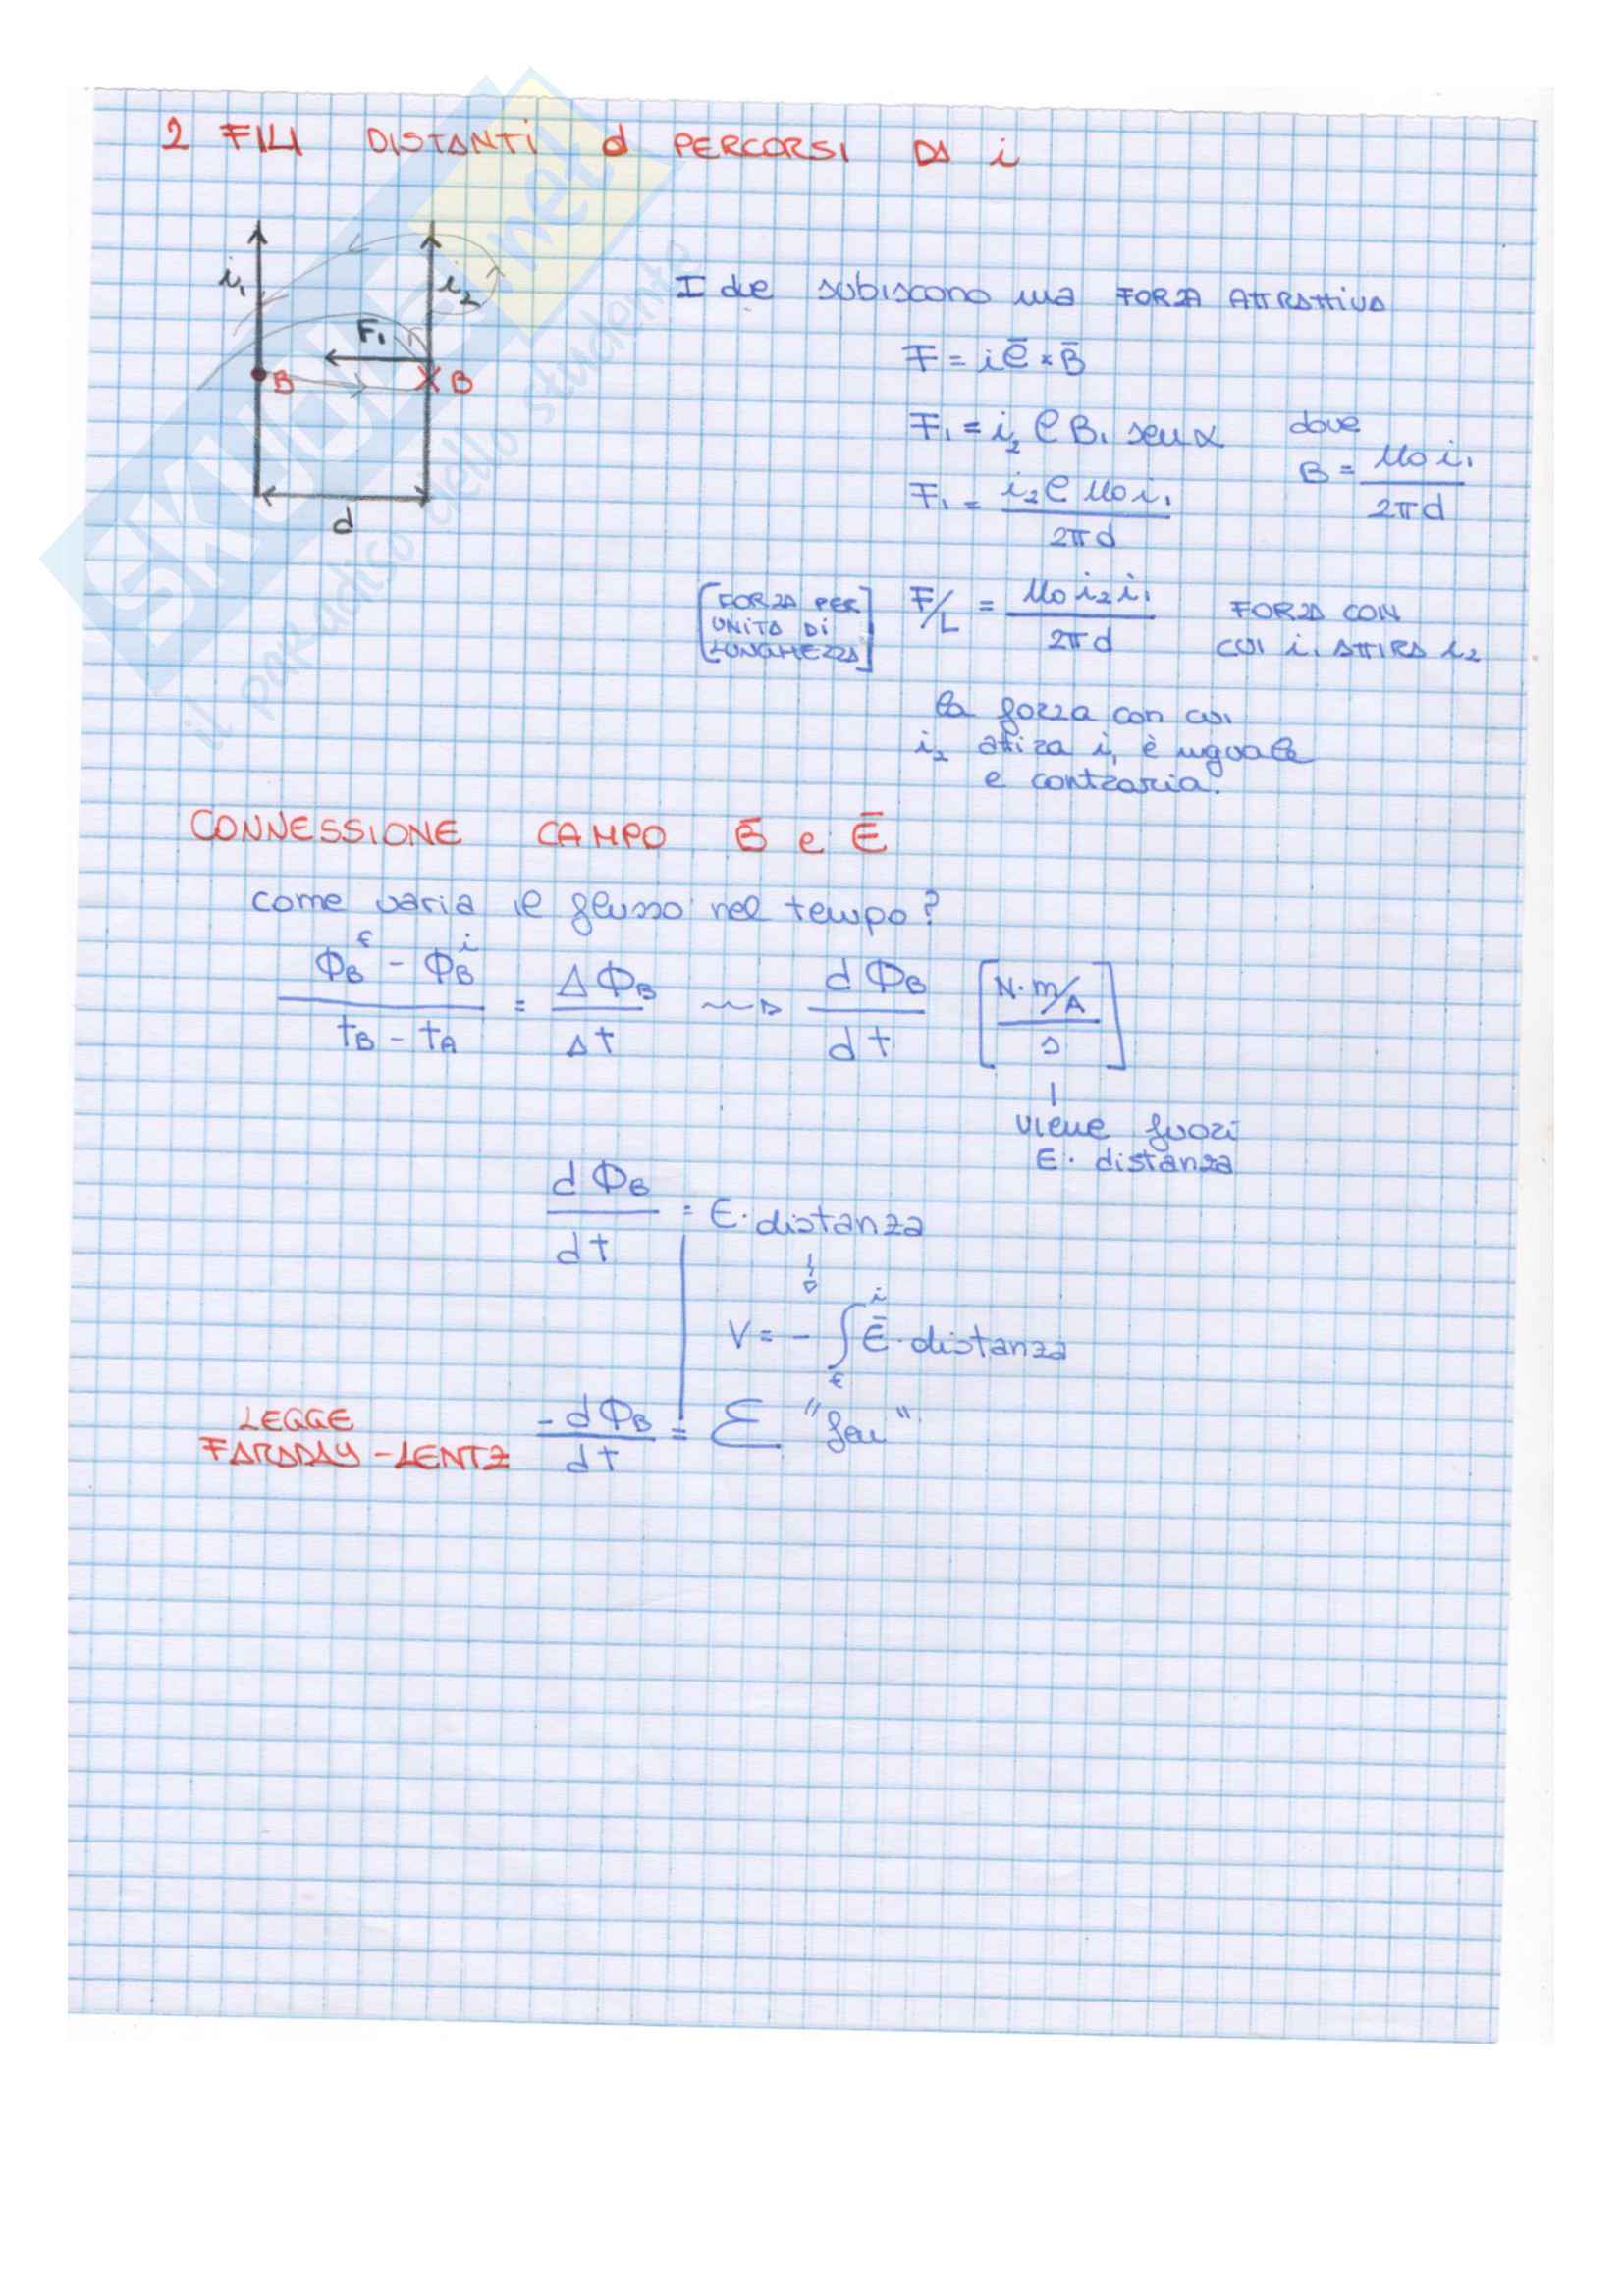 2 FILI DISTANTI d PERCORSI DA i
i₁
i₂
F₁
B
B
d
I due subiscono una FORZA ATTRATTIVA
F = i l̄ × B̄
F₁ = i₂ l B₁ sen α dove
B = μ₀ i₁ / 2πd
F₁ = i₂ l μ₀ i₁ / 2πd
[FORZA PER
UNITÀ DI
LUNGHEZZA]
F/L = μ₀ i₂ i₁ / 2πd
FORZA CON
CUI i₁ ATTIRA i₂
la forza con cui
i₂ attira i₁ è uguale
e contraria.
CONNESSIONE CAMPO B̄ e Ē
come varia il flusso nel tempo?
Φ_B^f - Φ_B^i / t_B - t_A = ΔΦ_B / Δt ⇝ dΦ_B / dt [N·m/A / s]
viene fuori
E · distanza
dΦ_B / dt = E · distanza
V = - ∫_f^i Ē · distanza
LEGGE
FARADAY-LENTZ
-dΦ_B / dt = Ɛ "fem"
SKUOLA.net
il paradiso dello studente